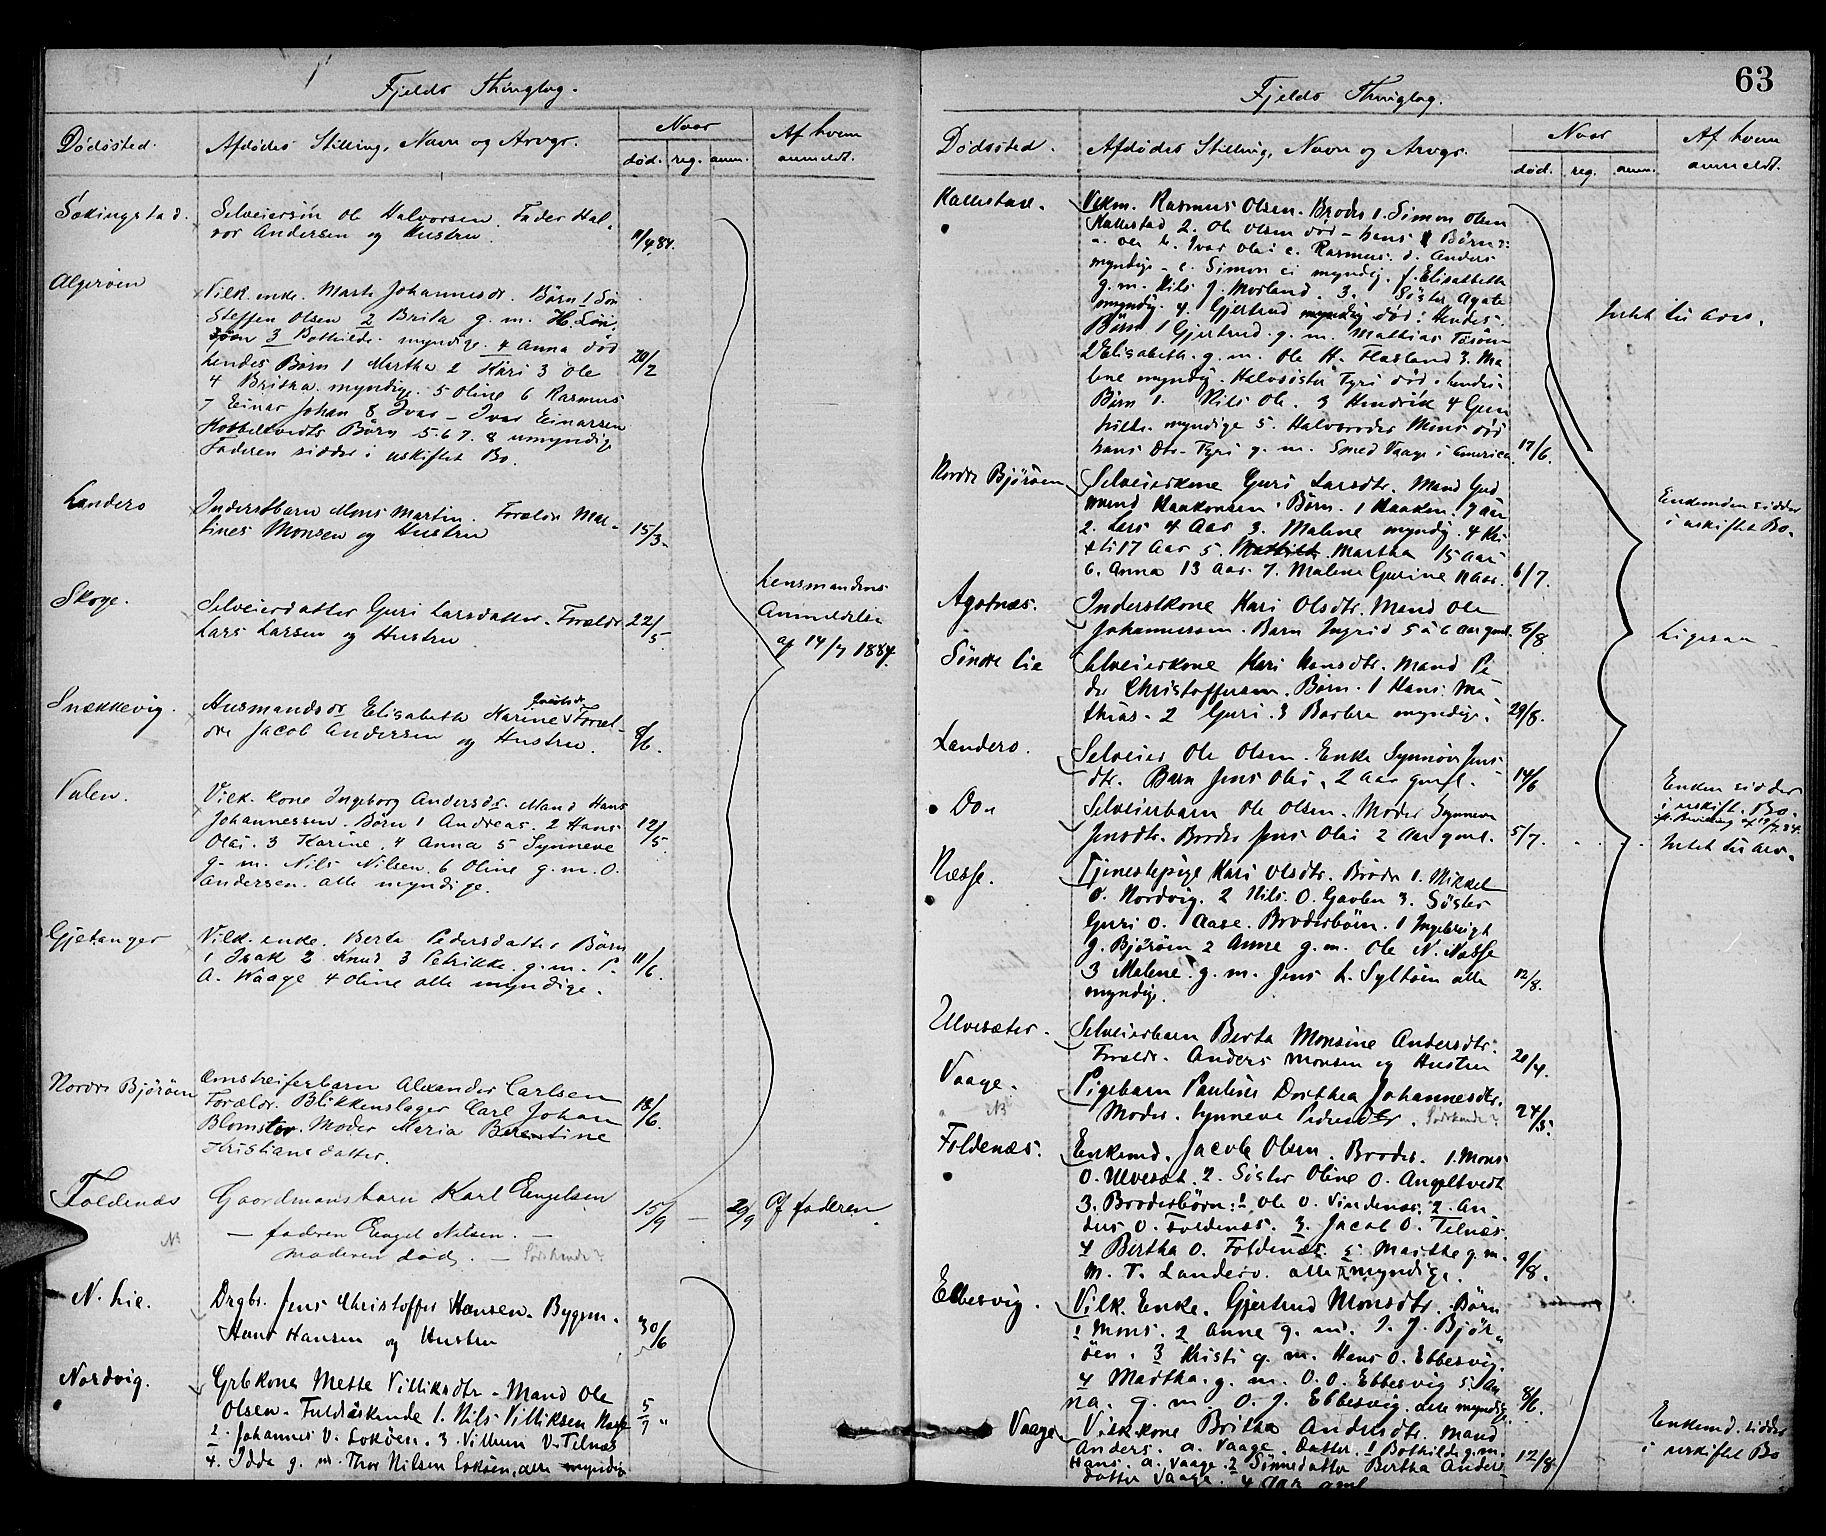 Fjelds Thinglag.
Dødssted.
Afdødes Stilling, Navn og Arvgr.
Naar
død. reg. anm.
Af hvem
anmeldt.
Selveiersön Ole Halvorsen. Fader Hal-
vor Andersen og Hustru.
11/4 84.
Algeröen
Vilk. enke. Marte Johannesdr. Börn 1 Sön
Steffen Olsen 2 Brita g. m. H.
3 Bothilde myndige. 4 Anna död
hendes Börn 1 Martha 2 Kari 3 Ole
4 Britha. myndige. 5 Oline 6 Rasmus
7 Einar Johan 8 Ivar – Ivar Einarsen
Kobbeltvedts Börn 5. 6 7. 8 umyndig
Faderen sidder i uskiftet Bo.
20/2
Landero
Inderstbarn Mons Martin. Foreldr Mar-
tines Monsen og Hustru
15/3.
Skoge.
Selveierdatter Guri Larsdatter. Foreldr
Lars Larsen og Hustru.
22/5.
Lensmandens
Anmeldelse
af 14/7 1884.
Snekkevig.
Husmandsdr Elisabeth Karine Jacobsdr Foræl-
dre Jacob Andersen og Hustru.
8/6.
Valen.
Vilk. kone Ingeborg Andersdr. Mand Hans
Johannessen. Börn 1 Andreas. 2 Hans
Olai. 3 Karine. 4 Anna 5 Synneve
g. m. Nils Nilsen. 6 Oline g. m. O.
Andersen. alle myndige.
12/5.
Gjetanger
Vilk. enke. Berta Pedersdatter Börn
1 Isak 2 Knud 3 Petrikke. g. m. P.
A. Waage 4 Oline alle myndige.
11/6.
Nordre Björöen
Omstreiferbarn Alexander Carlsen
Foreldr. Blikkenslager Carl Johan
Blomster. Moder Maria Berentine
Kristiansdatter.
18/6.
Foldenæs
Gaardmansbarn Karl Engelsen
– faderen Engel Nilsen. –
moderen död. – Södskende?
15/9 – 29/9
Af faderen
NB
N. Lie.
Drgbr. Jens Christoffer Hansen. Bygsm.
Hans Hansen og Hustru
30/6
Nordvig.
Grbkone Mette Villiksdtr – Mand Ole
Olsen. Fuldsöskende 1. Nils Villiksen Næsse
2. Johannes V. Loköen. 3. Villum V. Tilnæs
4. Idda g. m. Thor Nilsen Loköen, alle myndige
5/7 "
63
Fjelds Thinglag.
Dødssted.
Afdødes Stilling, Navn og Arvgr.
Naar
død. reg. anm.
Af hvem
anmeldt.
Kallestad.
Vikm. Rasmus Olsen. Broder 1. Simon Olsen
Kallestad 2. Ole Olsen död – hans Börn:
a. Ole b. Ivar Olai c. Rasmus. d. Anders
myndige – e. Simon ei myndig. f. Elisabeth
g. m. Nils J. Morland. 3. Söster Agate
myndig. 4. Gjertrud myndig död: Hendes
Börn 1 Gjertrud. g. m. Mathias
2 Elisabeth. g. m. Ole H. Haaland 3. Ma-
lene myndig. Halvsöster Tyri död. hendes
Börn 1. Nils Ole. 3 Hendrik 4 Gun
hilde myndige 5. Halvbroder Mons död
hans Dtr. Tyri g. m. Smed Vaage i America
17/6.
Intet til Arv.
Nordre Björöen
Selveierkone Guri Larsdtr. Mand Gud
mund Haakonsen. Börn. 1 Haakon. 9 Aar
2. Lars 4 Aar 3. Malene myndig. 4 Kri
sti 17 Aar 5. Martha 15 Aar
6. Anna 13 Aar 7. Malene Gurine 11 Aar.
6/7.
Enkemden sidder
i uskiftet Bo.
Agotnæs.
Inderstkone Kari Olsdtr. Mand Ole
Johannessen. Barn Ingrid 5 à 6 Aar gml.
8/8.
Ligesaa
Söndre Lie
Selveierkone Kari Hansdtr. Mand Pe-
der Christoffersen. Börn. 1 Hans Ma-
thias. 2 Guri. 3 Barbra myndige.
29/8.
Landero.
Selveier Ole Olsen. Enke Synnöve Jens
dtr. Barn Jens Olai. 2 Aar gml.
14/6
Enken sidder
i uskift. Bo.
Do
Selveierbarn Ole Olsen. Moder Synneve
Jensdtr. Broder Jens Olai 2 Aar gml.
5/7.
Intet til Arv.
Næsse.
Tjenestepige Kari Olsdtr. Brödr 1. Mikkel
O. Nordvig. 2 Nils. O. Garten 3. Söster
Guri O. Aase. Broderbörn. 1 Ingebrigt
g. Björöen 2 Anne g. m. Ole N. Næsse
3 Malene. g. m. Jens L. Syltöen alle
myndige.
12/8.
Ulvesæter.
Selveierbarn Berta Monsine Andersdtr.
Foreldr. Anders Monsen og Hustru
20/4.
Vaage.
Pigebarn Pauline Dorthea Johannesdtr.
Moder. Synneve Pedersdtr. Södskende?
24/5.
NB
Foldenæs.
Enkemd. Jacob Olsen. Broder. 1. Mons
O. Ulveset. 2. Söster Oline O. Angeltvedt
3. Broderbörn: 1 Ole O. Vindenæs. 2. An-
ders O. Foldenæs. 3. Jacob O. Tilnæs.
4 Bertha O. Foldenæs. 5. Marthe g. m.
M. T. Landero. alle myndige.
9/8.
Ebbesvig.
Vilk. Enke. Gjertrud Monsdtr. Börn
1 Mons. 2 Anne g. m. J. J. Björ-
öen. 3 Kristi g. m. Hans O. Ebbesvig.
4 Martha. g. m. O. O. Ebbesvig 5. An-
na. g. m. O. J. Ebbesvig. alle myndig
8/6.
Vaage
Vilk. kone Britha Andersdtr. Mand
Anders. A. Vaage. Datter. 1 Bothilde g. m.
Hans. A. Vaage. 2 Sönnedatter Bertha Anders-
datter Vaage. 4 Aar gml.
12/8
Enkemd. sidder
i uskiftet Bo